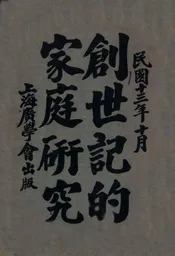 民國十三年十月
創世記的
家庭研究
上海廣學會出版